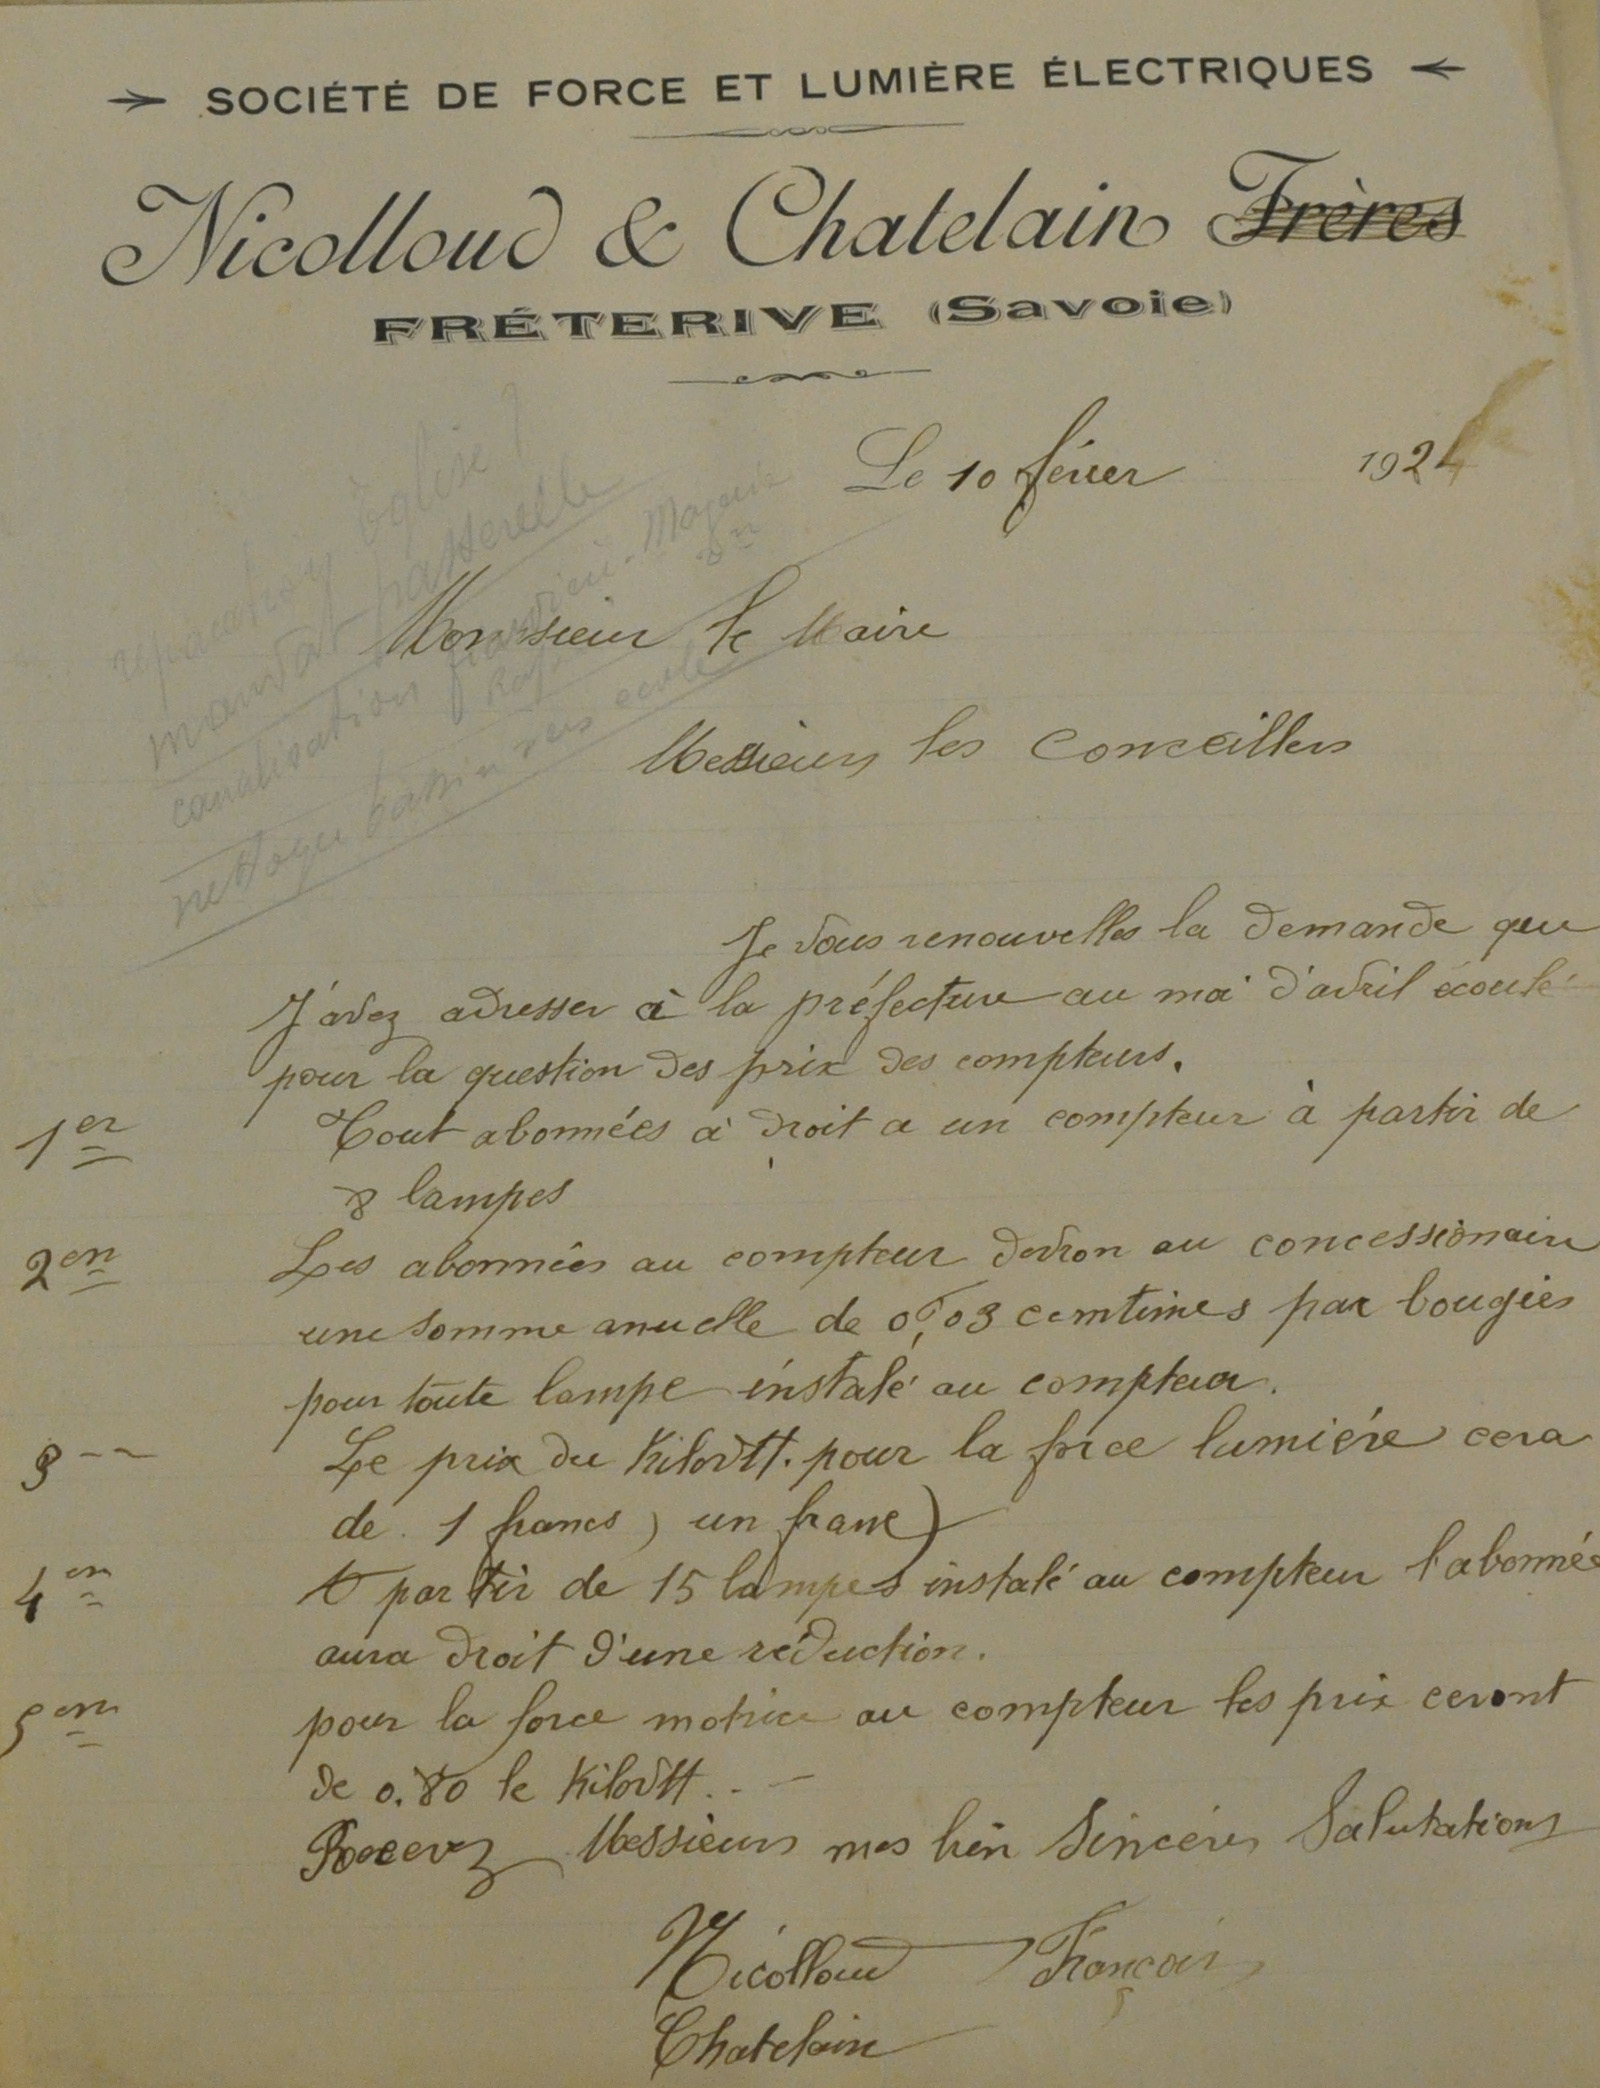 SOCIÉTÉ DE FORCE ET LUMIÈRE ÉLECTRIQUES
Nicolloud & Chatelain Frères
FRÉTERIVE (Savoie)
Le 10 févier 1924
réparation église ?
mandat passerelle
canalisation
nettoyer bassin vers école
Monsieur le Maire
Messieurs les Conseillers
Je vous renouvelles la demande que
J'avez adresser à la préfecture au moi d'avril écoulé
pour la question des prix des compteurs.
1er Tout abonnées à droit a un compteur à partir de
8 lampes
2em Les abonnées au compteur devron au concessionaire
une somme anuelle de 0f,03 centimes par bougies
pour toute lampe instalé au compteur.
3 -- Le prix du Kilovtt. pour la force lumière cera
de 1 francs ) un franc)
4em A partir de 15 lampes instalé au compteur l'abonnée
aura droit d'une réduction.
5em pour la force motrice au compteur les prix ceront
de 0.80 le Kilovtt..-
Recevez Messieurs mes bien Sincères Salutations
Nicolloud François
Chatelain